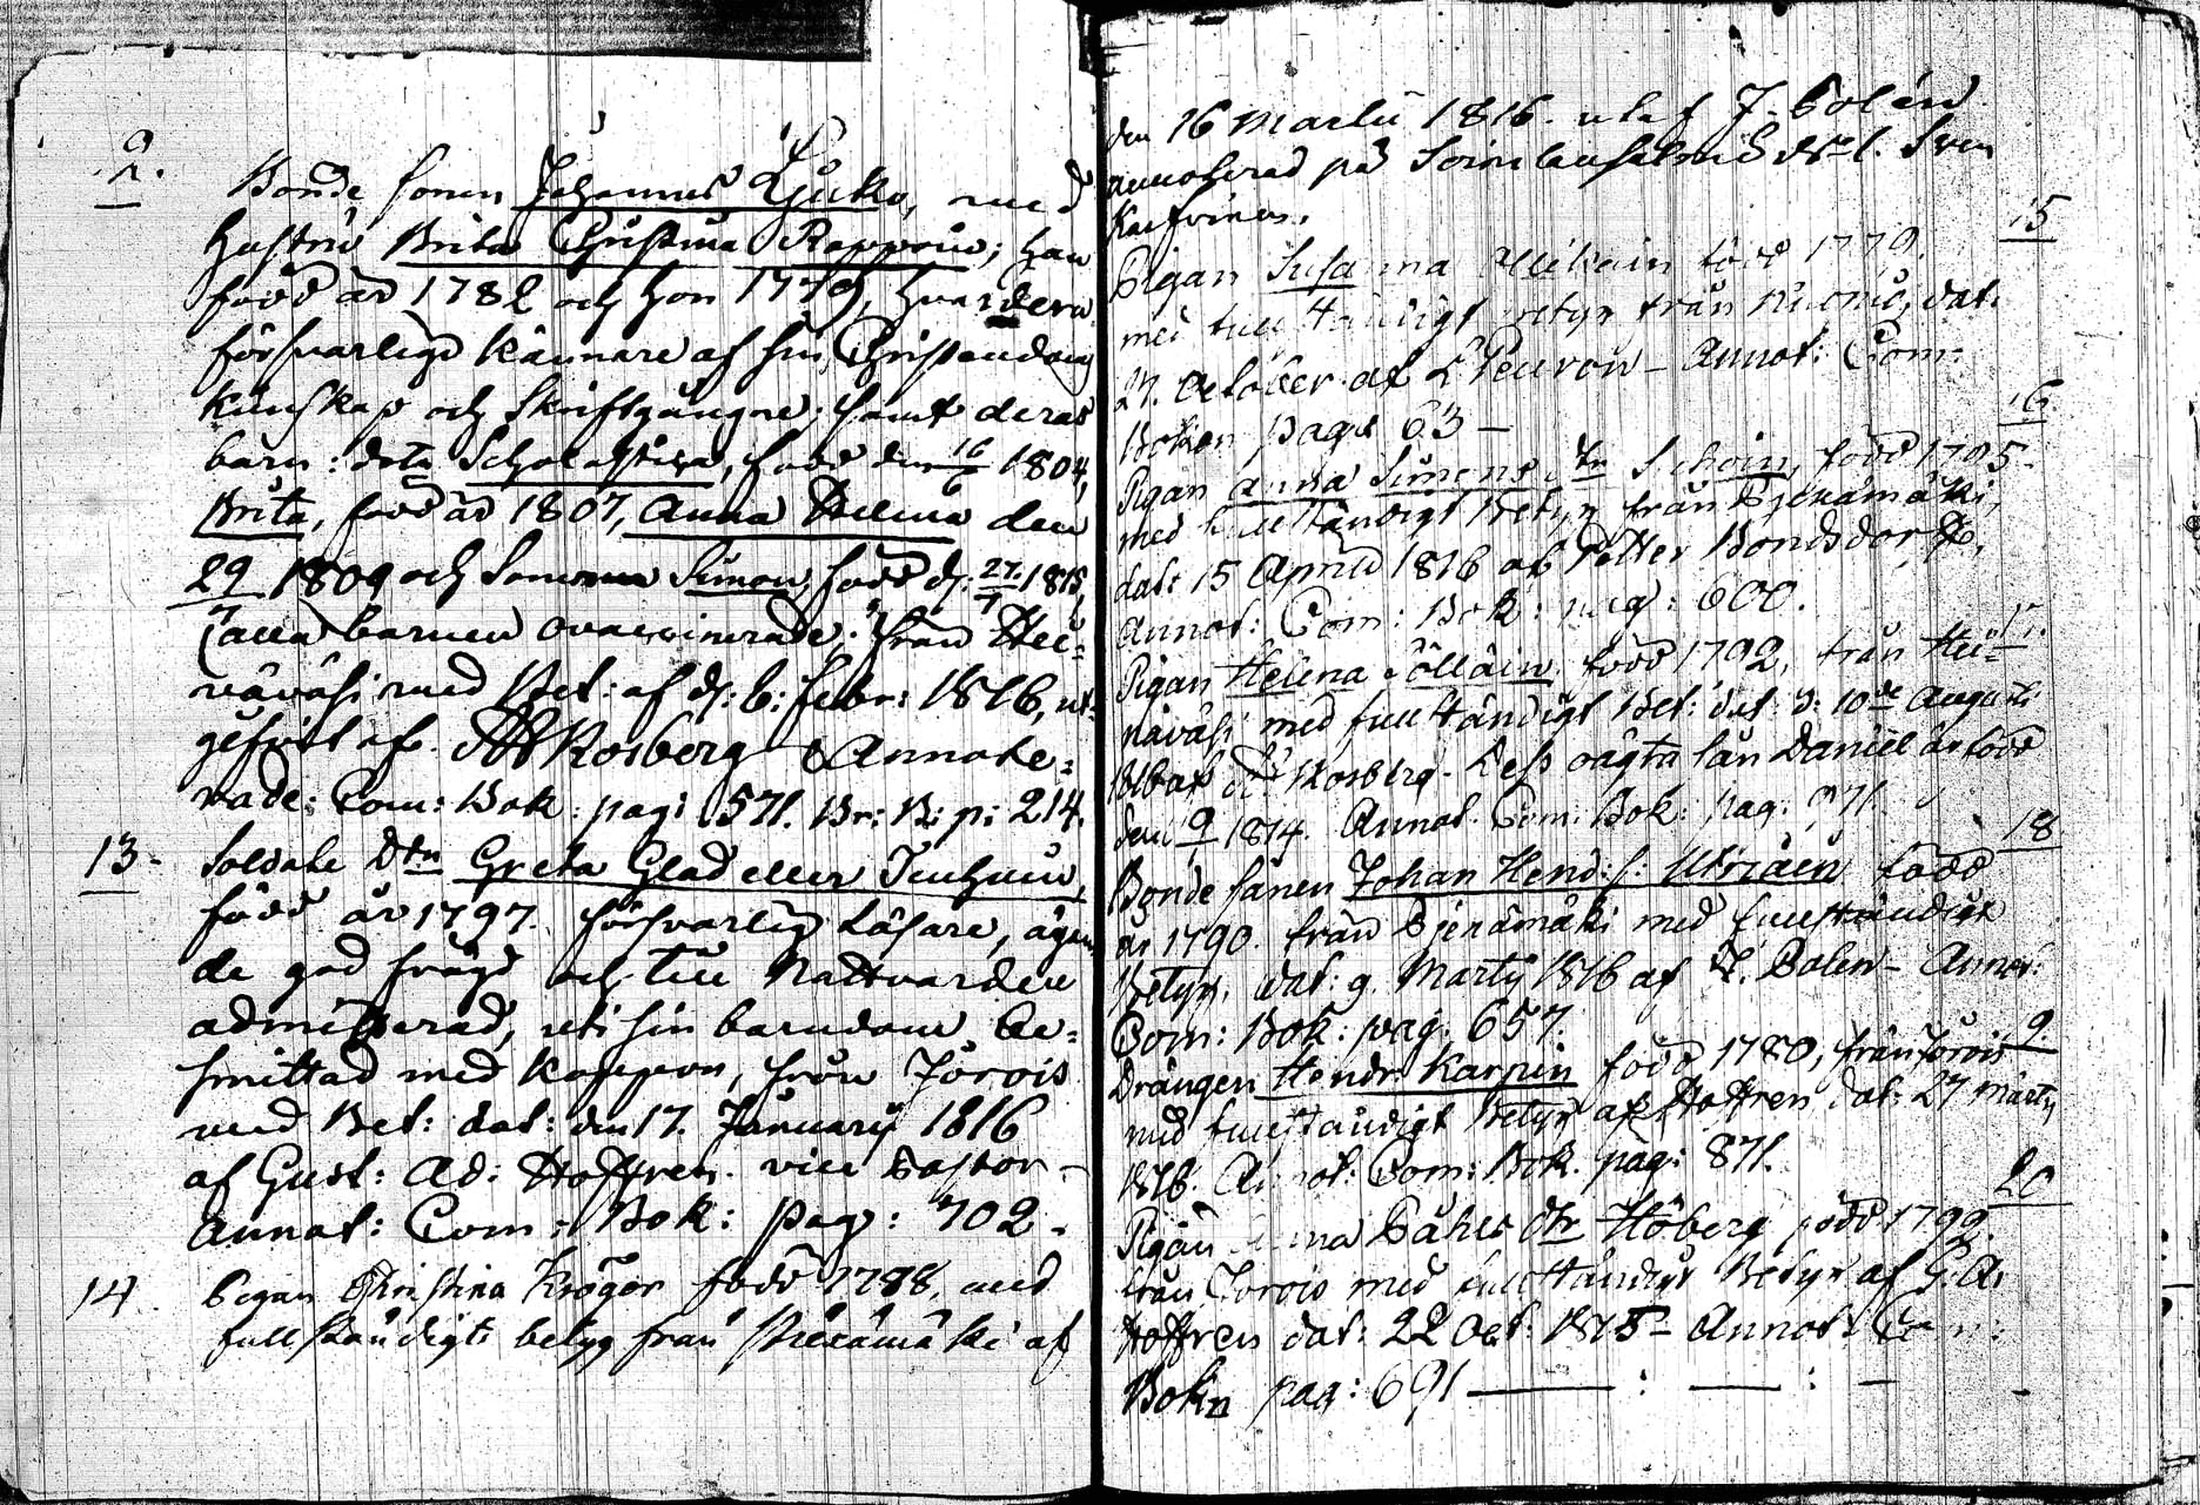 2.
Bonde sonen Johannes Ljukko, med
hustru Brita Christina Rapproin; han
född år 1782 och hon 1779, hvardera
försvarlige kännare af sin Christendoms
kunskap och Skriftgångne; samt deras
barn: dotn Scholastica, född den 16/6 1804,
Brita, född år 1807, Anna Helena den
29/7 1809 och Sonen Simon, född d: 27/7 1815,
(alla barnen ovaccinerade; från Hei=
näväsi med Bet: af d: 6: Febr: 1816, ut=
gefvit af Kosberg Annote=
rade: Com: Bok: pag: 571. Br: B: p: 214.
13. Soldate Dtn Greta Glad eller Tenhuin,
född år 1797. försvarlig Läsare, ägan
de god frägd och till Nattvarden
admitterad, uti sin barndom be=
smittad med Koppor, från Jorois
med Bet: dat: den 17. January 1816
af Gust: Ad: Hoffren. vice Pastor -
Annot: Com: Bok: pag: 702.
14. Pigan Christina Kröger född 1788, med
fullständigt betyg från Piexämäki af
den 16 Martii 1816. utaf J. Bolén
annoterad på
15
Pigan Susanna född 1779.
med fullständigt betyg från dat:
27. October af Peuron - Annot: Com:
Boken pag: 63 -
16
Pigan Anna Simons dtr född 1795.
med fullständigt Betyg från Pjexämäki,
dat: 15 April 1816 af Petter Bonsdorff,
Annot: Com: Bok: pag: 600.
17.
Pigan Helena Pölläin, född 1792, från Hei=
näväsi med fullständigt Bet: dat: d: 10de Augusti
af Kosberg. Dess oägta sån Daniel är född
1814. Annot. Com: Bok: pag:
18
Bonde sånen Johan Hend: s: Utriäin född
år 1790. från Pjexämäki med fullständigt
Betyg, dat: 9. Martÿ 1816 af J. Bolen - Annot:
Com: Bok: pag: 657.
9.
Drängen Hendr: Karpin född 1780, från Jorois
med fullständigt Betyg af Hoffren dat: 27 Marty
1816. Annot: Com: Bok. pag: 871.
20
Pigan Påhls dtr Höberg född 1799.
från Jorois med fullständigt Betyg af G. A.
Hoffren dat: 22 Oct: 1815 - Annot: Com:
Bokn pag: 691